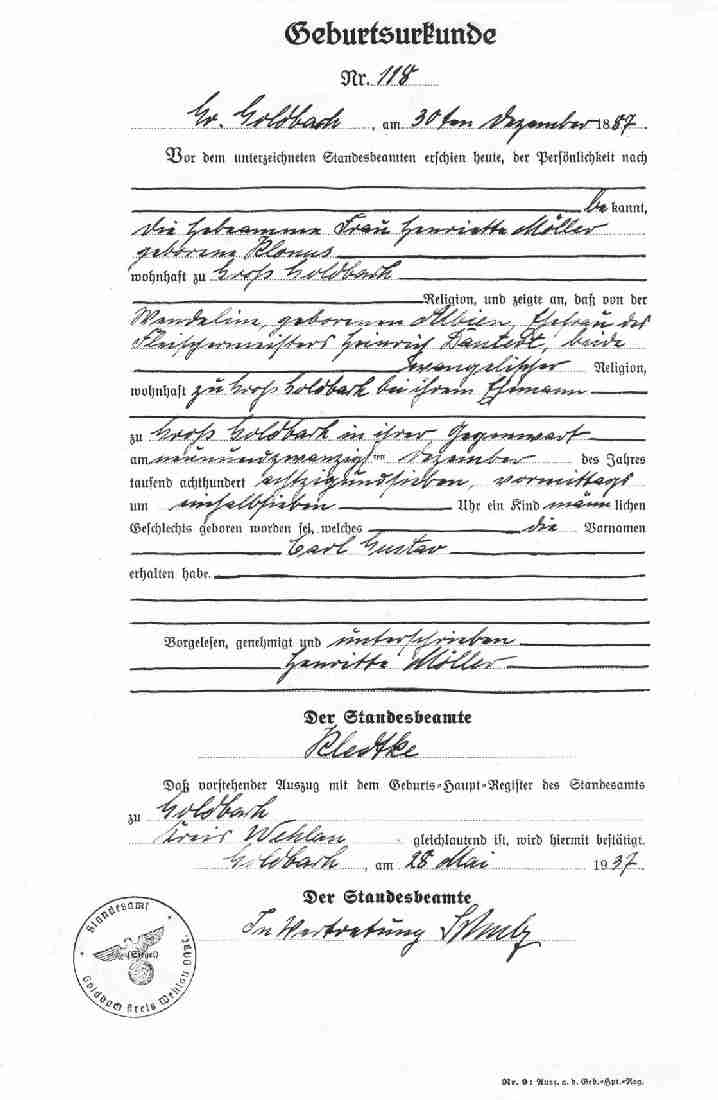 Geburtsurkunde
Nr. 118
Gr. Goldbach, am 30ten Dezember 1887.
Vor dem unterzeichneten Standesbeamten erschien heute, der Persönlichkeit nach
bekannt,
die Hebeamme Frau Henriette Möller
geborene Klonus
wohnhaft zu Groß Goldbach
Religion, und zeigte an, daß von der
Wendeline, geborenen Albien, Ehefrau des
Fleischermeisters Heinrich, beide
evangelischer Religion,
wohnhaft zu Groß Goldbach bei ihrem Ehemann
zu Groß Goldbach in ihrer Gegenwart
am neunundzwanzigsten Dezember des Jahres
tausend achthundert achtzigundsieben, vormittags
um einhalbsieben Uhr ein Kind männlichen
Geschlechts geboren worden sei, welches die Vornamen
Carl Gustav
erhalten habe.
Vorgelesen, genehmigt und unterschrieben
Henritte Möller
Der Standesbeamte
Kledtke
Daß vorstehender Auszug mit dem Geburts-Haupt-Register des Standesamts
zu Goldbach
Kreis Wehlau gleichlautend ist, wird hiermit bestätigt.
Goldbach, am 28 Mai 1937
Der Standesbeamte
In Vertretung
Standesamt
(Siegel)
Goldbach Kreis Wehlau Ostpr.
Nr. 9: Ausz. a. d. Geb.-Hpt.-Reg.